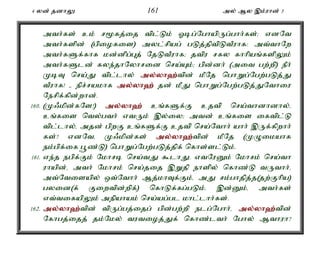 4 லன் தனாலூ 161 அல் ஆல இம்ரான் 3
அவர்கள் உம் சமூகத்தை விட்டும் ஓடிப்போயிருப்பார்கள்; எனவே
அவர்களின் (பிழைகளை) அலட்சியப் படுத்திவிடுவீராக; அவ்வாறே
அவர்களுக்காக மன்னிப்புத் தேடுவீராக; தவிர சகல காரியங்களிலும்
அவர்களுடன் கலந்தாலோசனை செய்யும்; பின்னர் (அவை பற்றி) நீர்
முடிவு செய்து விட்டால் அல்லாஹ்வின் மீதே பொறுப்பேற்படுத்து
வீராக! - நிச்சயமாக அல்லாஹ் தன் மீது பொறுப்பேற்படுத்துவோரை
நேசிக்கின்றான்.
160. (முஃமின்களே!) அல்லாஹ் உங்களுக்கு உதவி செய்வானானால்,
உங்களை வெல்பவர் எவரும் இல்லை; அவன் உங்களை கைவிட்டு
விட்டால், அதன் பிறகு உங்களுக்கு உதவி செய்வோர் யார் இருக்கிறார்
கள்? எனவே, முஃமின்கள் அல்லாஹ்வின் மீதே (முழுமையாக
நம்பிக்கை பூண்டு) பொறுப்பேற்படுத்திக் கொள்ளட்டும்.
161. எந்த நபிக்கும் மோசடி செய்வது கூடாது. எவரேனும் மோசம் செய்வா
ராயின், அவர் மோசம் செய்ததை இறுதி நாளில் கொண்டு வருவார்,
அவ்வேளையில் ஒவ்வோர் ஆத்மாவுக்கும், அது சம்பாதித்த(தற்குரிய)
பலனை(க் குறைவின்றிக்) கொடுக்கப்படும். இன்னும், அவர்கள்
எவ்வகையிலும் அநியாயம் செய்யப்பட மாட்டார்கள்.
162. அல்லாஹ்வின் விருப்பத்தைப் பின்பற்றி நடப்போர், அல்லாஹ்வின்
கோபத்தைத் தம்மேல் வரவழைத்துக் கொண்டவர் போல் ஆவாரா?